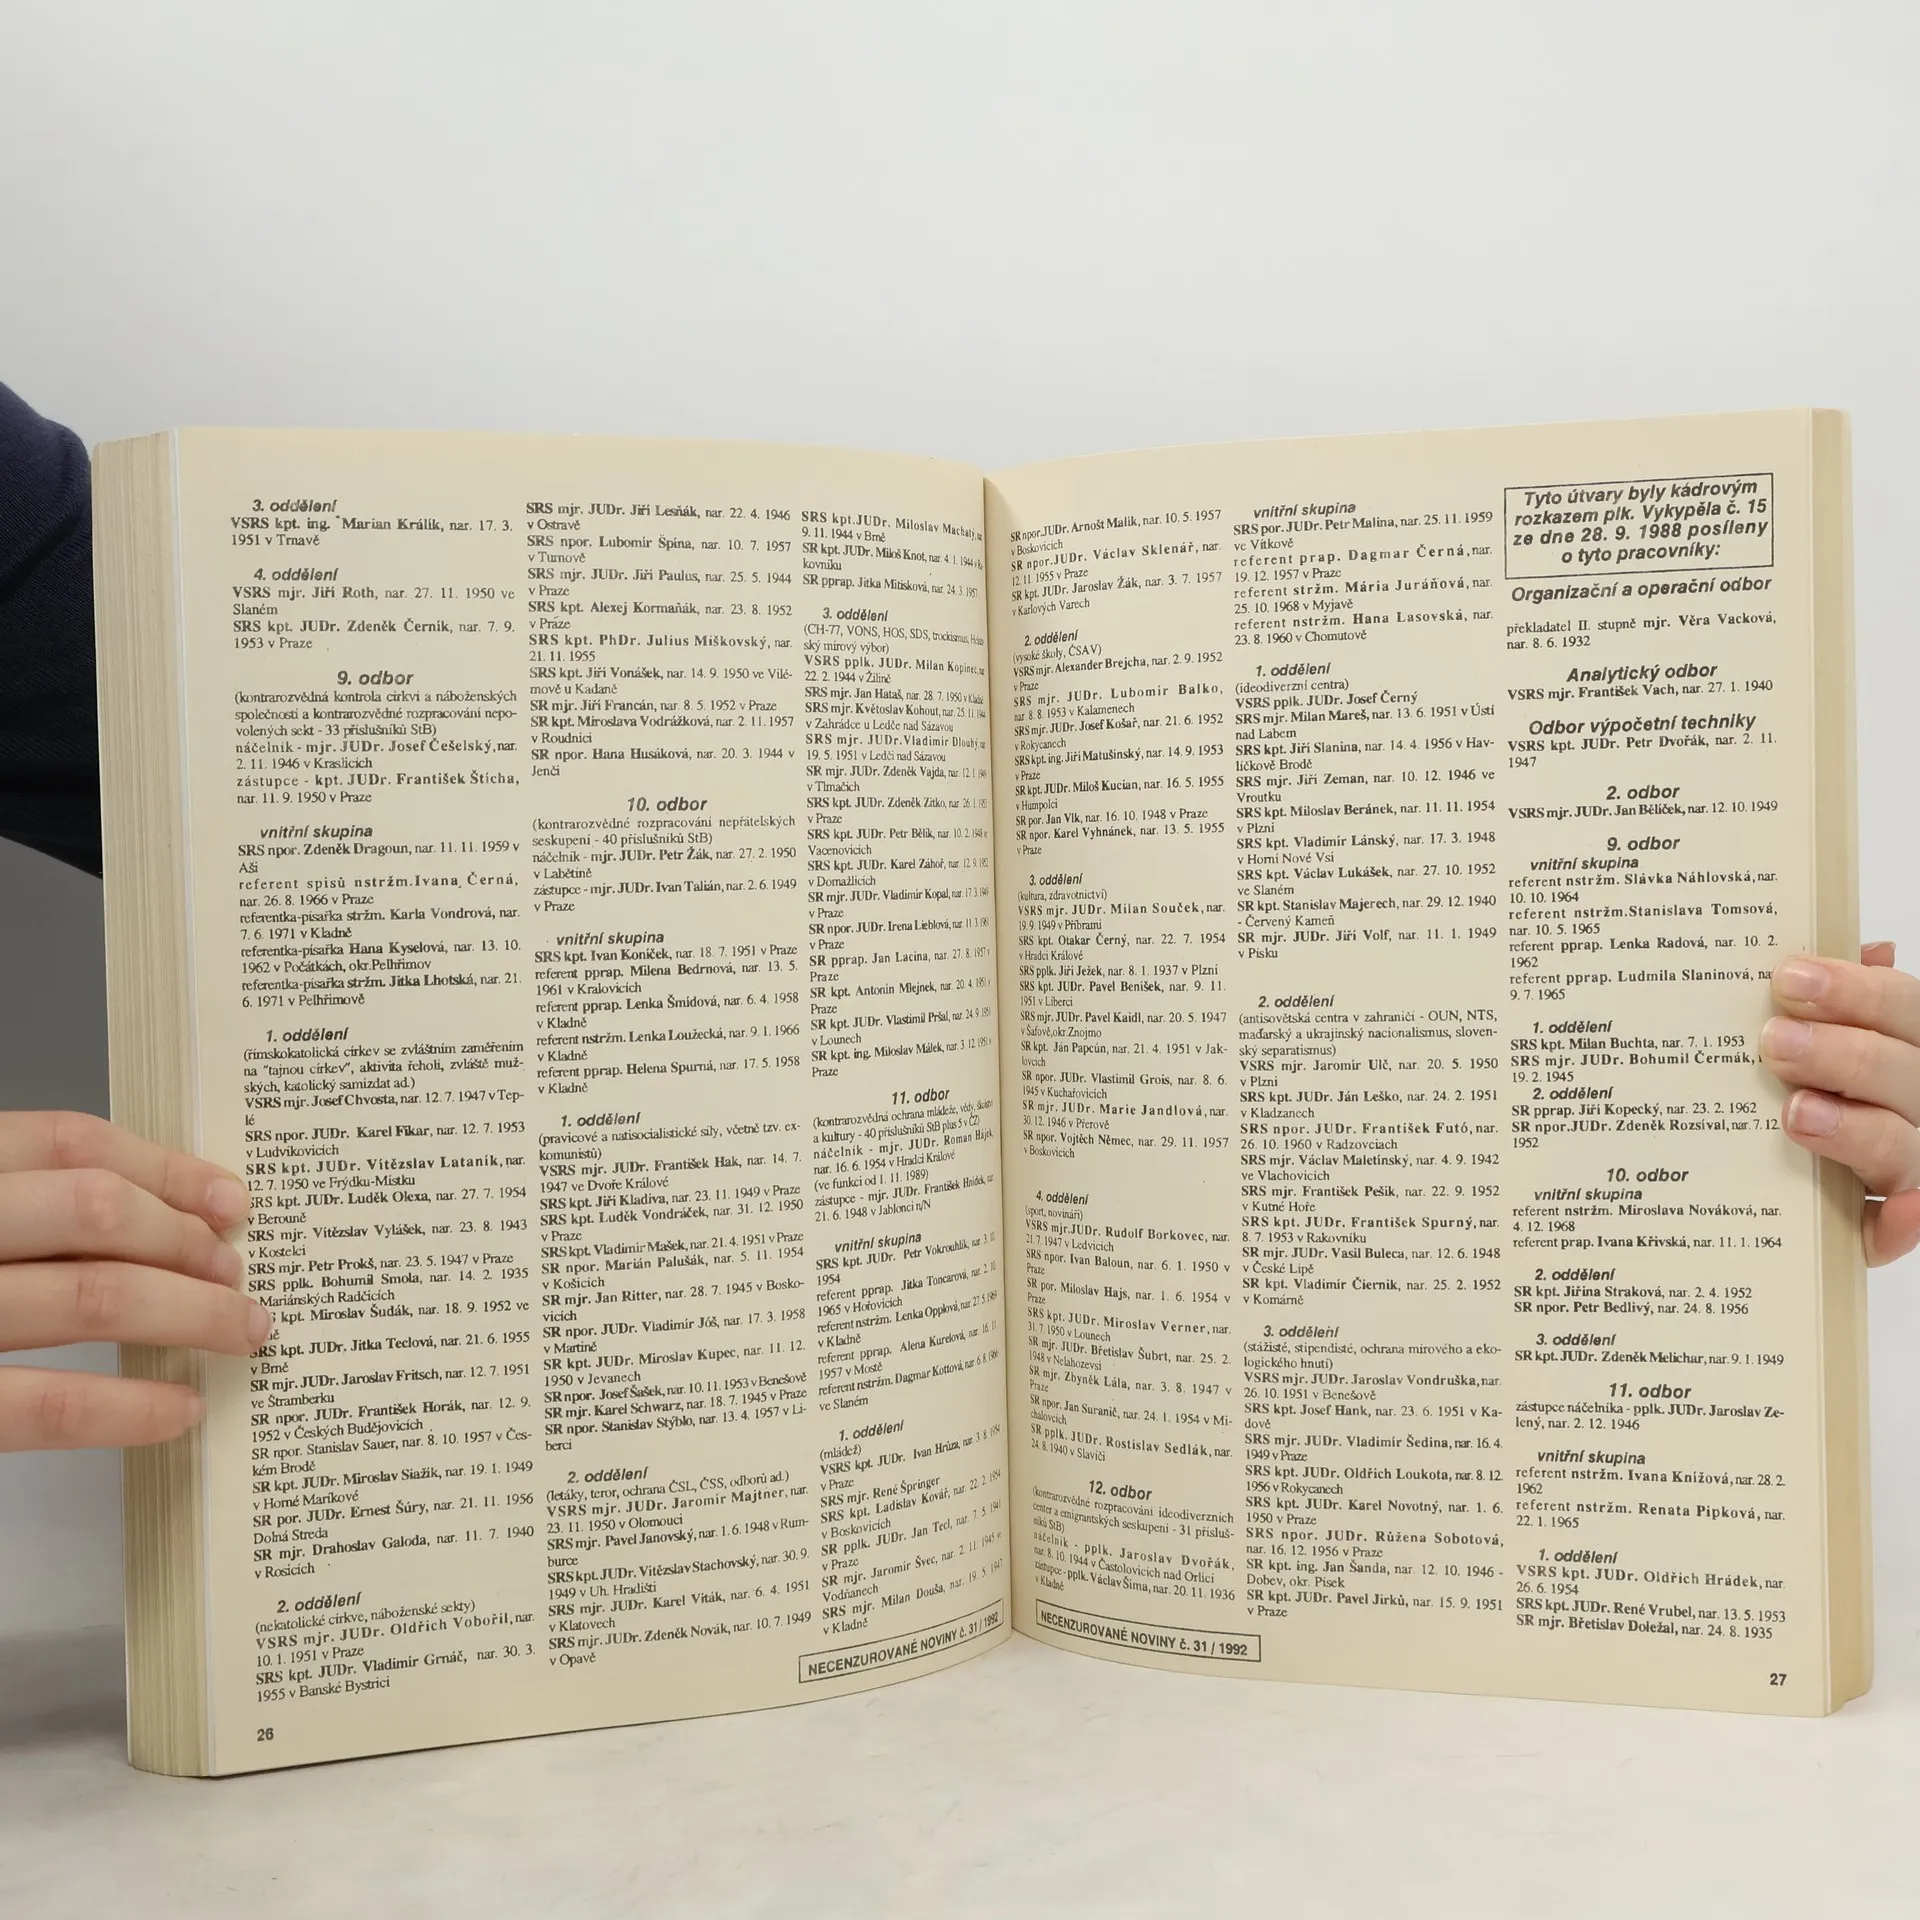 3. oddělení
VSRS kpt. ing. Marian Králik, nar. 17. 3.
1951 v Trnavě
4. oddělení
VSRS mjr. Jiří Roth, nar. 27. 11. 1950 ve
Slaném
SRS kpt. JUDr. Zdeněk Černík, nar. 7. 9.
1953 v Praze
9. odbor
(kontrarozvědná kontrola církví a náboženských
společností a kontrarozvědné rozpracování nepo-
volených sekt - 33 příslušníků StB)
náčelník - mjr. JUDr. Josef Češelský, nar.
2. 11. 1946 v Kraslicích
zástupce - kpt. JUDr. František Štícha,
nar. 11. 9. 1950 v Praze
vnitřní skupina
SRS npor. Zdeněk Dragoun, nar. 11. 11. 1959 v
Aši
referent spisů nstržm. Ivana Černá,
nar. 26. 8. 1966 v Praze
referentka-písařka stržm. Karla Vondrová, nar.
7. 6. 1971 v Kladně
referentka-písařka Hana Kyselová, nar. 13. 10.
1962 v Počátkách, okr.Pelhřimov
referentka-písařka stržm. Jitka Lhotská, nar. 21.
6. 1971 v Pelhřimově
1. oddělení
(římskokatolická církev se zvláštním zaměřením
na "tajnou církev", aktivita řeholí, zvláště muž-
ských, katolický samizdat ad.)
VSRS mjr. Josef Chvosta, nar. 12. 7. 1947 v Tep-
lé
SRS npor. JUDr. Karel Fikar, nar. 12. 7. 1953
v Ludvíkovicích
SRS kpt. JUDr. Vítězslav Lataník, nar.
12. 7. 1950 ve Frýdku-Místku
SRS kpt. JUDr. Luděk Olexa, nar. 27. 7. 1954
v Berouně
SRS mjr. Vítězslav Vylášek, nar. 23. 8. 1943
v Kostelci
SRS mjr. Petr Prokš, nar. 23. 5. 1947 v Praze
SRS pplk. Bohumil Smola, nar. 14. 2. 1935
Mariánských Radčicích
kpt. Miroslav Šudák, nar. 18. 9. 1952 ve
SRS kpt. JUDr. Jitka Teclová, nar. 21. 6. 1955
v Brně
SR mjr. JUDr. Jaroslav Fritsch, nar. 12. 7. 1951
ve Štramberku
SR npor. JUDr. František Horák, nar. 12. 9.
1952 v Českých Budějovicích
SR npor. Stanislav Sauer, nar. 8. 10. 1957 v Čes-
kém Brodě
SR kpt. JUDr. Miroslav Siažik, nar. 19. 1. 1949
v Horné Maríkové
SR por. JUDr. Ernest Šúry, nar. 21. 11. 1956
Dolná Streda
SR mjr. Drahoslav Galoda, nar. 11. 7. 1940
v Rosicích
2. oddělení
(nekatolické církve, náboženské sekty)
VSRS mjr. JUDr. Oldřich Vobořil, nar.
10. 1. 1951 v Praze
SRS kpt. JUDr. Vladimír Grnáč, nar. 30. 3.
1955 v Banské Bystrici
26
SRS mjr. JUDr. Jiří Lesňák, nar. 22. 4. 1946
v Ostravě
SRS npor. Lubomír Špína, nar. 10. 7. 1957
v Turnově
SRS mjr. JUDr. Jiří Paulus, nar. 25. 5. 1944
v Praze
SRS kpt. Alexej Kormaňák, nar. 23. 8. 1952
v Praze
SRS kpt. PhDr. Julius Miškovský, nar.
21. 11. 1955
SRS kpt. Jiří Vonášek, nar. 14. 9. 1950 ve Vilé-
mově u Kadaně
SR mjr. Jiří Francán, nar. 8. 5. 1952 v Praze
SR kpt. Miroslava Vodrážková, nar. 2. 11. 1957
v Roudnici
SR npor. Hana Husáková, nar. 20. 3. 1944 v
Jenči
10. odbor
(kontrarozvědné rozpracování nepřátelských
seskupení - 40 příslušníků StB)
náčelník - mjr. JUDr. Petr Žák, nar. 27. 2. 1950
v Labětíně
zástupce - mjr. JUDr. Ivan Talián, nar. 2. 6. 1949
v Praze
vnitřní skupina
SRS kpt. Ivan Koníček, nar. 18. 7. 1951 v Praze
referent pprap. Milena Bedrnová, nar. 13. 5.
1961 v Kralovicích
referent pprap. Lenka Šmídová, nar. 6. 4. 1958
v Kladně
referent nstržm. Lenka Loužecká, nar. 9. 1. 1966
v Kladně
referent pprap. Helena Spurná, nar. 17. 5. 1958
v Kladně
1. oddělení
(pravicové a natisocialistické síly, včetně tzv. ex-
komunistů)
VSRS mjr. JUDr. František Hak, nar. 14. 7.
1947 ve Dvoře Králové
SRS kpt. Jiří Kladiva, nar. 23. 11. 1949 v Praze
SRS kpt. Luděk Vondráček, nar. 31. 12. 1950
v Praze
SRS kpt. Vladimír Mašek, nar. 21. 4. 1951 v Praze
SR npor. Marián Palušák, nar. 5. 11. 1954
v Košicích
SR mjr. Jan Ritter, nar. 28. 7. 1945 v Bosko-
vicích
SR npor. JUDr. Vladimír Jóš, nar. 17. 3. 1958
v Martině
SR kpt. JUDr. Miroslav Kupec, nar. 11. 12.
1950 v Jevanech
SR npor. Josef Šašek, nar. 10. 11. 1953 v Benešově
SR mjr. Karel Schwarz, nar. 18. 7. 1945 v Praze
SR npor. Stanislav Stýblo, nar. 13. 4. 1957 v Li-
berci
2. oddělení
(letáky, teror, ochrana ČSL, ČSS, odborů ad.)
VSRS mjr. JUDr. Jaromír Majtner, nar.
23. 11. 1950 v Olomouci
SRS mjr. Pavel Janovský, nar. 1. 6. 1948 v Rum-
burce
SRS kpt. JUDr. Vítězslav Stachovský, nar. 30. 9.
1949 v Uh. Hradišti
SRS mjr. JUDr. Karel Viták, nar. 6. 4. 1951
v Klatovech
SRS mjr. JUDr. Zdeněk Novák, nar. 10. 7. 1949
v Opavě
SRS kpt. JUDr. Miloslav Machatý,
9. 11. 1944 v Brně
SR kpt. JUDr. Miloš Knot, nar. 4. 1. 1944 v
kovníku
SR pprap. Jitka Mitisková, nar. 24. 3. 1957
3. oddělení
(CH-77, VONS, HOS, SDS, trockismus,
ský mírový výbor)
VSRS pplk. JUDr. Milan Kopinec,
22. 2. 1944 v Žilině
SRS mjr. Jan Hataš, nar. 28. 7. 1950 v Kladně
SRS mjr. Květoslav Kohout, nar. 25. 11.
v Zahrádce u Ledče nad Sázavou
SRS mjr. JUDr. Vladimír Dlouhý,
19. 5. 1951 v Ledči nad Sázavou
SR mjr. JUDr. Zdeněk Vajda, nar. 12. 1.
v Tlmačích
SRS kpt. JUDr. Zdeněk Zítko, nar. 26. 1.
v Praze
SRS kpt. JUDr. Petr Bělík, nar. 10. 2.
Vacenovicích
SRS kpt. JUDr. Karel Záhoř, nar. 12. 9.
v Domažlicích
SR mjr. JUDr. Vladimír Kopal, nar. 17. 3.
v Praze
SR npor. JUDr. Irena Lieblová, nar. 11. 3.
v Praze
SR pprap. Jan Lacina, nar. 27. 8.
Praze
SR kpt. Antonín Mlejnek, nar. 20. 4.
Praze
SR kpt. JUDr. Vlastimil Pršal, nar. 24. 9.
v Lounech
SR kpt. ing. Miloslav Málek, nar. 3. 12.
Praze
11. odbor
(kontrarozvědná ochrana mládeže, vědy,
a kultury - 40 příslušníků StB plus 5 v ČZ)
náčelník - mjr. JUDr. Roman Hájek,
nar. 16. 6. 1954 v Hradci Králové
(ve funkci od 1. 11. 1989)
zástupce - mjr. JUDr. František Hnídek,
21. 6. 1948 v Jablonci n/N
vnitřní skupina
SRS kpt. JUDr. Petr Vokrouhlík, nar. 3.
1954
referent pprap. Jitka Toncarová, nar. 2.
1965 v Hořovicích
referent nstržm. Lenka Opplová, nar. 27. 5.
v Kladně
referent pprap. Alena Kurelová, nar. 16.
1957 v Mostě
referent nstržm. Dagmar Kottová, nar. 6. 8.
ve Slaném
1. oddělení
(mládež)
VSRS kpt. JUDr. Ivan Hrůza, nar. 3. 8. 1954
v Praze
SRS mjr. René Špringer
SRS kpt. Ladislav Kovář, nar. 22. 2. 1954
v Boskovicích
SR pplk. JUDr. Jan Tecl, nar. 7. 5. 1941
v Praze
SR mjr. Jaromír Švec, nar. 2. 11. 1945 ve
Vodňanech
SRS mjr. Milan Douša, nar. 19. 5. 1947
v Kladně
NECENZUROVANÉ NOVINY č. 31 / 1992
SR npor.JUDr. Arnošt Malik, nar. 10. 5. 1957
v Boskovicích
SR npor.JUDr. Václav Sklenář, nar.
12. 11. 1955 v Praze
SR kpt. JUDr. Jaroslav Žák, nar. 3. 7. 1957
v Karlových Varech
2. oddělení
(vysoké školy, ČSAV)
VSRS mjr. Alexander Brejcha, nar. 2. 9. 1952
v Praze
SRS mjr. JUDr. Lubomír Balko,
nar. 8. 8. 1953 v Kalamenech
SRS mjr. JUDr. Josef Košař, nar. 21. 6. 1952
v Rokycanech
SRS kpt. ing. Jiří Matušinský, nar. 14. 9. 1953
v Praze
SR kpt. JUDr. Miloš Kucian, nar. 16. 5. 1955
v Humpolci
SR por. Jan Vlk, nar. 16. 10. 1948 v Praze
SR npor. Karel Vyhnánek, nar. 13. 5. 1955
v Praze
3. oddělení
(kultura, zdravotnictví)
VSRS mjr. JUDr. Milan Souček, nar.
19. 9. 1949 v Příbrami
SRS kpt. Otakar Černý, nar. 22. 7. 1954
v Hradci Králové
SRS pplk. Jiří Ježek, nar. 8. 1. 1937 v Plzni
SRS kpt. JUDr. Pavel Benišek, nar. 9. 11.
1951 v Liberci
SRS mjr. JUDr. Pavel Kaidl, nar. 20. 5. 1947
v Šafově,okr.Znojmo
SR kpt. Ján Papcún, nar. 21. 4. 1951 v Jak-
lovcích
SR npor. JUDr. Vlastimil Grois, nar. 8. 6.
1945 v Kuchařovicích
SR mjr. JUDr. Marie Jandlová, nar.
30. 12. 1946 v Přerově
SR npor. Vojtěch Němec, nar. 29. 11. 1957
v Boskovicích
4. oddělení
(sport, novináři)
VSRS mjr.JUDr. Rudolf Borkovec, nar.
21. 7. 1947 v Ledvicích
SRS npor. Ivan Baloun, nar. 6. 1. 1950 v
Praze
SR por. Miloslav Hajs, nar. 1. 6. 1954 v
Praze
SRS kpt. JUDr. Miroslav Verner, nar.
31. 7. 1950 v Lounech
SR mjr. JUDr. Břetislav Šubrt, nar. 25. 2.
1948 v Nelahozevsi
SR mjr. Zbyněk Lála, nar. 3. 8. 1947 v
Praze
SR npor. Jan Suranič, nar. 24. 1. 1954 v Mi-
chalovcích
SR pplk. JUDr. Rostislav Sedlák, nar.
24. 8. 1940 v Slavičí
12. odbor
(kontrarozvědné rozpracování ideodiverzních
center a emigrantských seskupení - 31 přísluš-
níků StB)
náčelník - pplk. Jaroslav Dvořák,
nar. 8. 10. 1944 v Častolovicích nad Orlicí
zástupce - pplk. Václav Šíma, nar. 20. 11. 1936
v Kladně
NECENZUROVANÉ NOVINY č. 31 / 1992
vnitřní skupina
SRS por. JUDr. Petr Malina, nar. 25. 11. 1959
ve Vítkově
referent prap. Dagmar Černá, nar.
19. 12. 1957 v Praze
referent stržm. Mária Juráňová, nar.
25. 10. 1968 v Myjavě
referent nstržm. Hana Lasovská, nar.
23. 8. 1960 v Chomutově
1. oddělení
(ideodiverzní centra)
VSRS pplk. JUDr. Josef Černý
SRS mjr. Milan Mareš, nar. 13. 6. 1951 v Ústí
nad Labem
SRS kpt. Jiří Slanina, nar. 14. 4. 1956 v Hav-
líčkově Brodě
SRS mjr. Jiří Zeman, nar. 10. 12. 1946 ve
Vroutku
SRS kpt. Miloslav Beránek, nar. 11. 11. 1954
v Plzni
SRS kpt. Vladimír Lánský, nar. 17. 3. 1948
v Horní Nové Vsi
SRS kpt. Václav Lukášek, nar. 27. 10. 1952
ve Slaném
SR kpt. Stanislav Majerech, nar. 29. 12. 1940
- Červený Kameň
SR mjr. JUDr. Jiří Volf, nar. 11. 1. 1949
v Písku
2. oddělení
(antisovětská centra v zahraničí - OUN, NTS,
maďarský a ukrajinský nacionalismus, sloven-
ský separatismus)
VSRS mjr. Jaromír Ulč, nar. 20. 5. 1950
v Plzni
SRS kpt. JUDr. Ján Leško, nar. 24. 2. 1951
v Kladzanech
SRS npor. JUDr. František Futó, nar.
26. 10. 1960 v Radzovciach
SRS mjr. Václav Maletínský, nar. 4. 9. 1942
ve Vlachovicích
SRS mjr. František Pešík, nar. 22. 9. 1952
v Kutné Hoře
SRS kpt. JUDr. František Spurný, nar.
8. 7. 1953 v Rakovníku
SR mjr. JUDr. Vasil Buleca, nar. 12. 6. 1948
v České Lípě
SR kpt. Vladimír Čiernik, nar. 25. 2. 1952
v Komárně
3. oddělení
(stážisté, stipendisté, ochrana mírového a eko-
logického hnutí)
VSRS mjr. JUDr. Jaroslav Vondruška, nar.
26. 10. 1951 v Benešově
SRS kpt. Josef Hank, nar. 23. 6. 1951 v Ka-
dově
SRS mjr. JUDr. Vladimír Šedina, nar. 16. 4.
1949 v Praze
SRS kpt. JUDr. Oldřich Loukota, nar. 8. 12.
1956 v Rokycanech
SRS kpt. JUDr. Karel Novotný, nar. 1. 6.
1950 v Praze
SRS npor. JUDr. Růžena Sobotová,
nar. 16. 12. 1956 v Praze
SR kpt. ing. Jan Šanda, nar. 12. 10. 1946 -
Dobev, okr. Písek
SR kpt. JUDr. Pavel Jirků, nar. 15. 9. 1951
v Praze
Tyto útvary byly kádrovým
rozkazem plk. Vykypěla č. 15
ze dne 28. 9. 1988 posíleny
o tyto pracovníky:
Organizační a operační odbor
překladatel II. stupně mjr. Věra Vacková,
nar. 8. 6. 1932
Analytický odbor
VSRS mjr. František Vach, nar. 27. 1. 1940
Odbor výpočetní techniky
VSRS kpt. JUDr. Petr Dvořák, nar. 2. 11.
1947
2. odbor
VSRS mjr. JUDr. Jan Bělíček, nar. 12. 10. 1949
9. odbor
vnitřní skupina
referent nstržm. Slávka Náhlovská, nar.
10. 10. 1964
referent nstržm.Stanislava Tomsová,
nar. 10. 5. 1965
referent pprap. Lenka Radová, nar. 10. 2.
1962
referent pprap. Ludmila Slaninová,
9. 7. 1965
1. oddělení
SRS kpt. Milan Buchta, nar. 7. 1. 1953
SRS mjr. JUDr. Bohumil Čermák,
19. 2. 1945
2. oddělení
SR pprap. Jiří Kopecký, nar. 23. 2. 1962
SR npor.JUDr. Zdeněk Rozsíval, nar. 7. 12.
1952
10. odbor
vnitřní skupina
referent nstržm. Miroslava Nováková, nar.
4. 12. 1968
referent prap. Ivana Křivská, nar. 11. 1. 1964
2. oddělení
SR kpt. Jiřina Straková, nar. 2. 4. 1952
SR npor. Petr Bedlivý, nar. 24. 8. 1956
3. oddělení
SR kpt. JUDr. Zdeněk Melichar, nar. 9. 1. 1949
11. odbor
zástupce náčelníka - pplk. JUDr. Jaroslav Ze-
lený, nar. 2. 12. 1946
vnitřní skupina
referent nstržm. Ivana Knížová, nar. 28. 2.
1962
referent nstržm. Renata Pipková, nar.
22. 1. 1965
1. oddělení
VSRS kpt. JUDr. Oldřich Hrádek, nar.
26. 6. 1954
SRS kpt. JUDr. René Vrubel, nar. 13. 5. 1953
SR mjr. Břetislav Doležal, nar. 24. 8. 1935
27